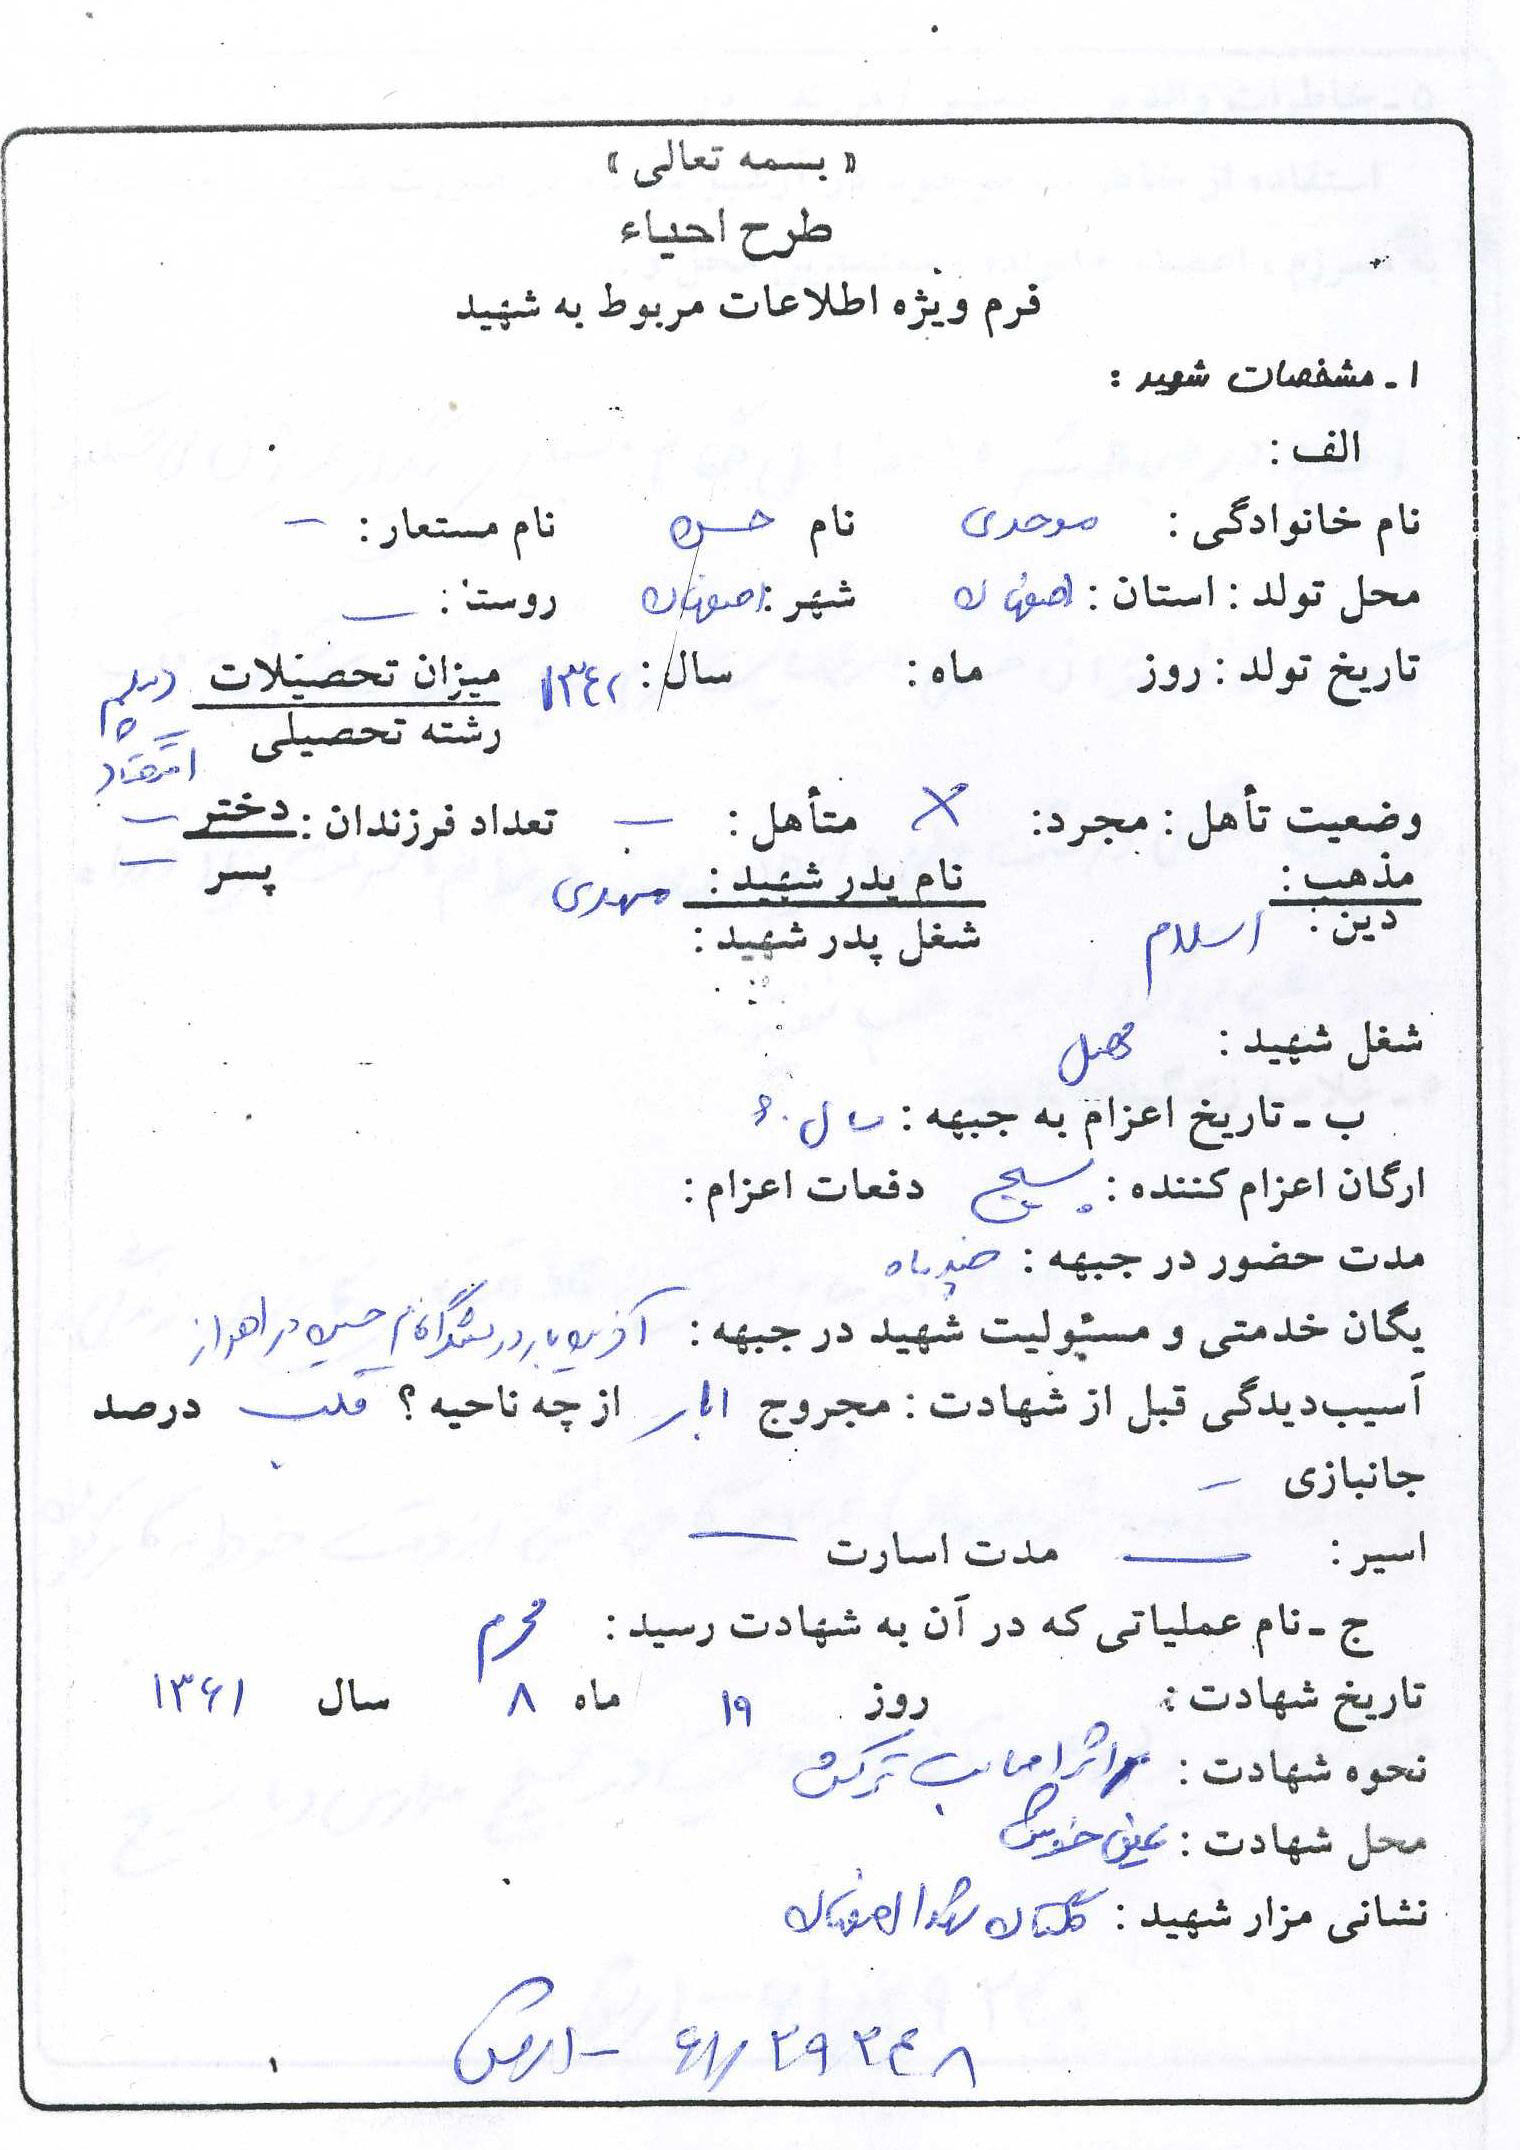 « بسمه تعالی »
طرح احیاء
فرم ویژه اطلاعات مربوط به شهید
۱ - مشخصات شهید :
الف :
نام خانوادگی : موحدی نام حسین نام مستعار : –
محل تولد : استان : اصفهان شهر : اصفهان روستا : –
تاریخ تولد : روز ماه : سال : ۱۳۴۲ میزان تحصیلات دیپلم
رشته تحصیلی اقتصاد
وضعیت تأهل : مجرد : × متأهل : – تعداد فرزندان : دختر –
پسر –
مذهب : نام پدر شهید : مهدی
دین : اسلام شغل پدر شهید :
شغل شهید : محصل
ب - تاریخ اعزام به جبهه : سال ۶۰
ارگان اعزام کننده : بسیج دفعات اعزام :
مدت حضور در جبهه : چند ماه
یگان خدمتی و مسئولیت شهید در جبهه : آخرین بار در لشگر امام حسین در اهواز
آسیب‌دیدگی قبل از شهادت : مجروح ۱بار از چه ناحیه ؟ قلب درصد
جانبازی –
اسیر : – مدت اسارت –
ج - نام عملیاتی که در آن به شهادت رسید : محرم
تاریخ شهادت : روز ۱۹ ماه ۸ سال ۱۳۶۱
نحوه شهادت : بر اثر اصابت ترکش
محل شهادت : عین خوش
نشانی مزار شهید : گلستان شهدا اصفهان
۶۱/۲۹۳۴۸ -
۱